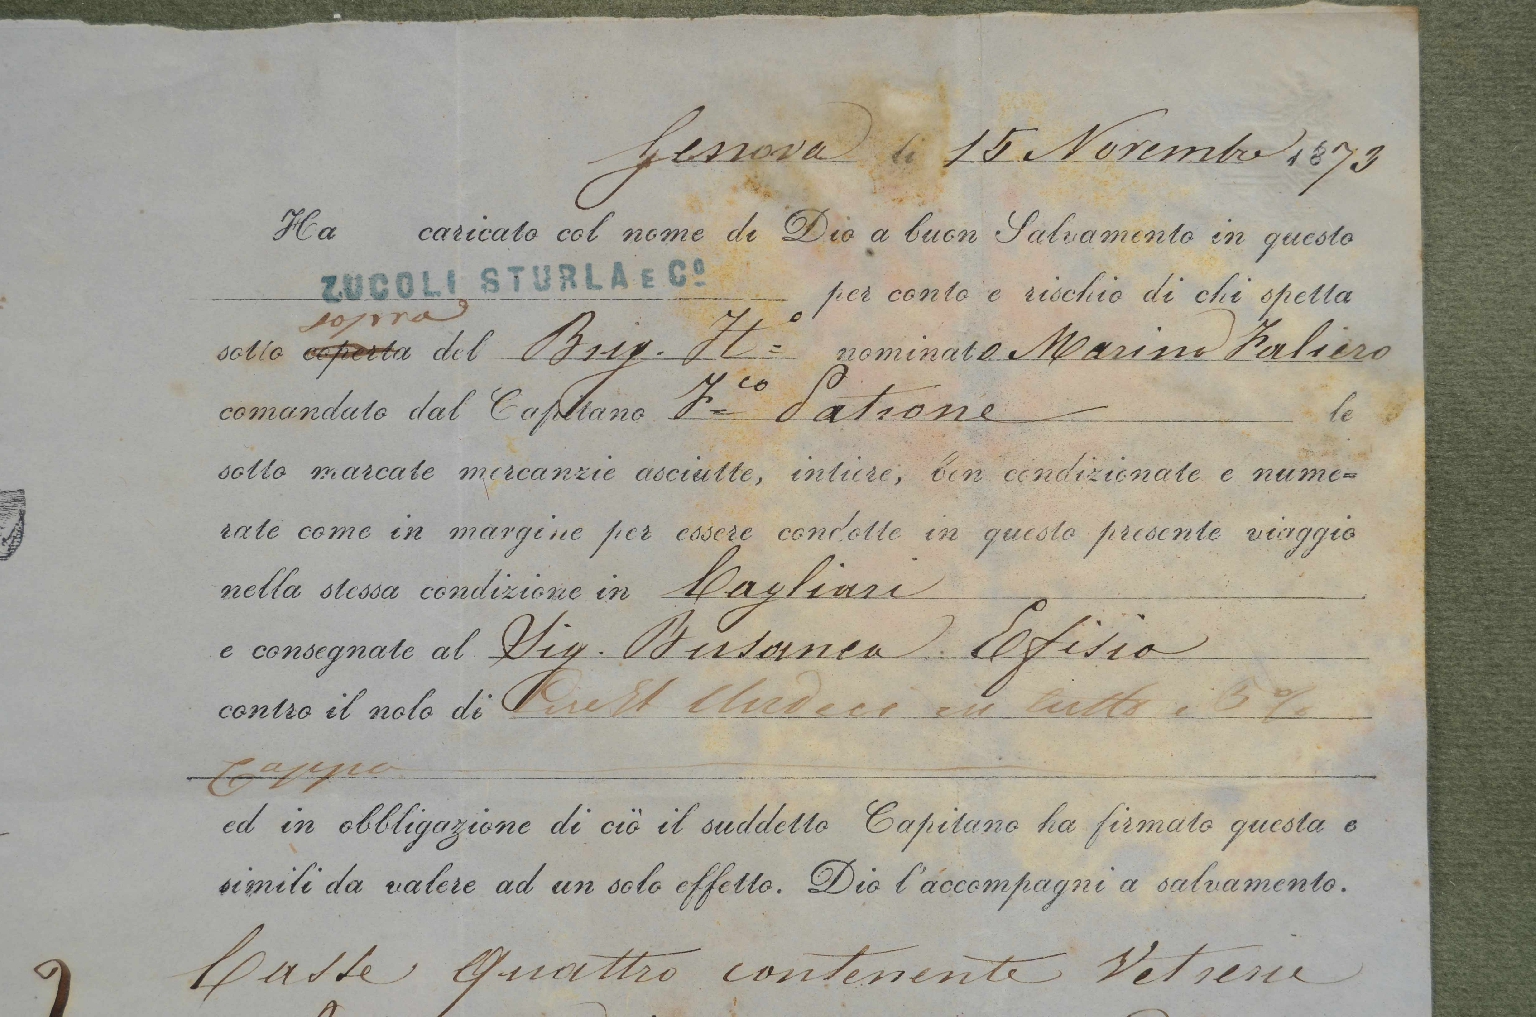 Genova li 15 Novembre 1873
Ha caricato col nome di Dio a buon Salvamento in questo
ZUCOLI STURLA E Cº per conto e rischio di chi spetta
sopra
sotto coperta del Brig. Itº nominato Marino Faliero
comandato dal Capitano Fco Patrone le
sotto marcate mercanzie asciutte, intiere, ben condizionate e nume=
rate come in margine per essere condotte in questo presente viaggio
nella stessa condizione in Cagliari
e consegnate al Sig. Busanca Efisio
contro il nolo di in tutto 5 %
Cappa
ed in obbligazione di ciò il suddetto Capitano ha firmato questa e
simili da valere ad un solo effetto. Dio l'accompagni a salvamento.
Casse Quattro contenente Vetrerie